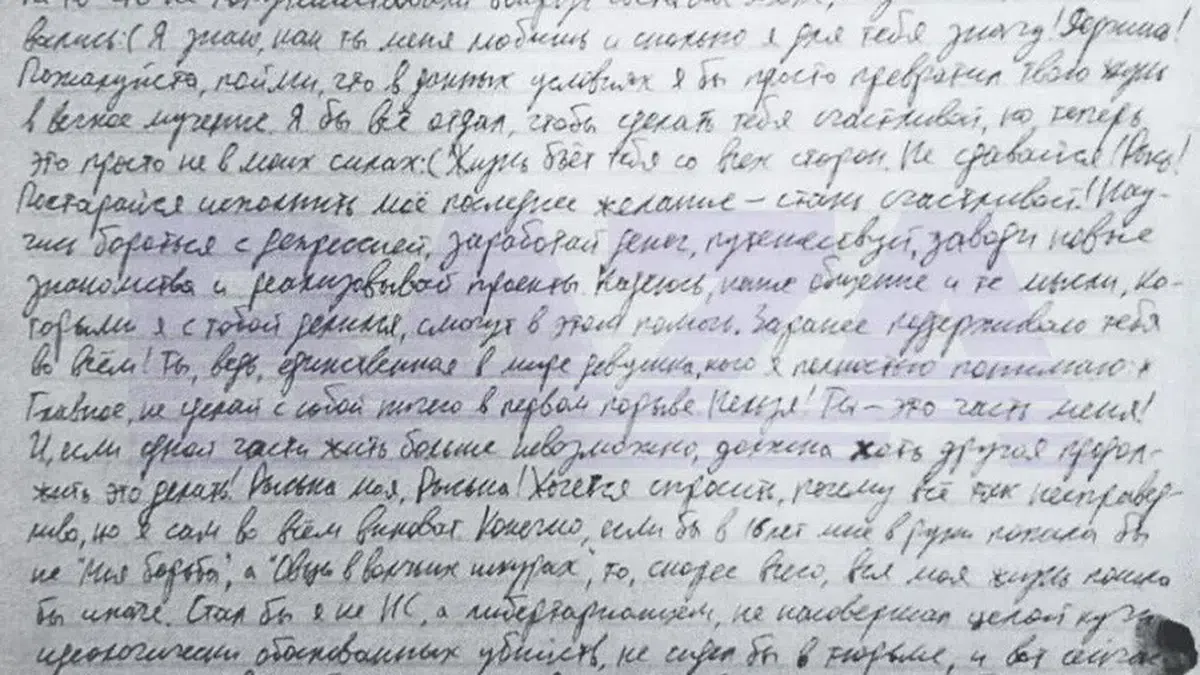 вались:( Я знаю, как ты меня любишь и сколько я для тебя значу! Держись!
Пожалуйста, пойми, что в данных условиях я бы просто превратил твою жизнь
в вечное мучение. Я бы всё отдал, чтобы сделать тебя счастливой, но теперь
это просто не в моих силах:( Жизнь бьёт тебя со всех сторон. Не сдавайся! Рысь!
Постарайся исполнить моё последнее желание – стань счастливой! Нау-
чись бороться с депрессией, заработай денег, путешествуй, заводи новые
знакомства и реализовывай проекты. Надеюсь, наше общение и те мысли, ко-
торыми я с тобой делился, смогут в этом помочь. Заранее поддерживаю тебя
во всём! Ты, ведь, единственная в мире девушка, кого я полностью понимаю
Главное, не сделай с собой ничего в первом порыве Нельзя! Ты – это часть меня!
И, если одной части жить больше невозможно, должна хоть другая продол-
жить это делать! Рыська моя, Рыська! Хочется спросить, почему всё так несправед-
ливо, но я сам во всём виноват Конечно, если бы в 16 лет мне в руки попала бы
не "Моя борьба", а "Овцы в волчьих шкурах", то, скорее всего, вся моя жизнь пошла
бы иначе. Стал бы я не НС, а либертарианцем, не насовершал целой кучи
идеологически обоснованных убийств, не сидел бы в тюрьме, и вот сейчас
BAZA